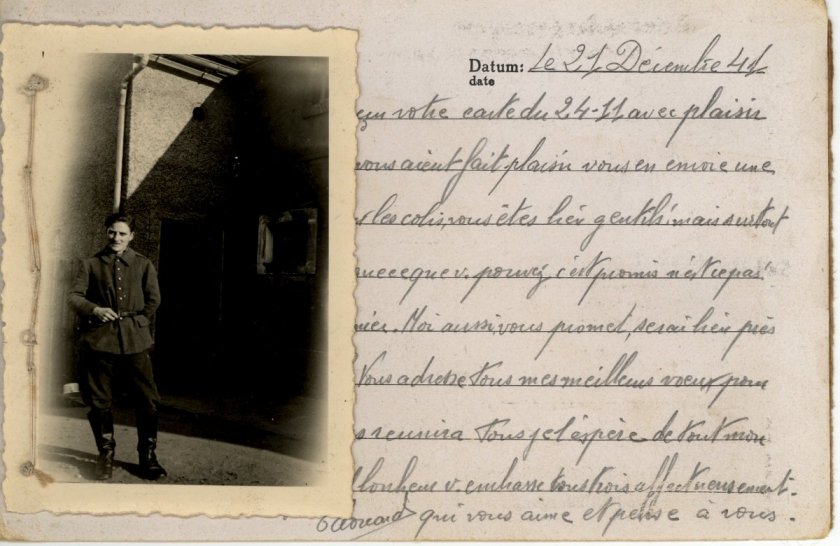 Datum: Le 21 Décembre 41
date
votre carte du 24-11 avec plaisir
vous aient fait plaisir vous en envoie une
les colis, vous êtes bien gentils, mais surtout
que ce que v. pouvez c'est promis n'est ce pas
Moi aussi, vous promet, serai bien près
Vous adresse tous mes meilleurs voeux pour
reunira tous je l'espère de tout mon
bonheur v. embrasse tous trois affectueusement.
Edouard qui vous aime et pense à vous.